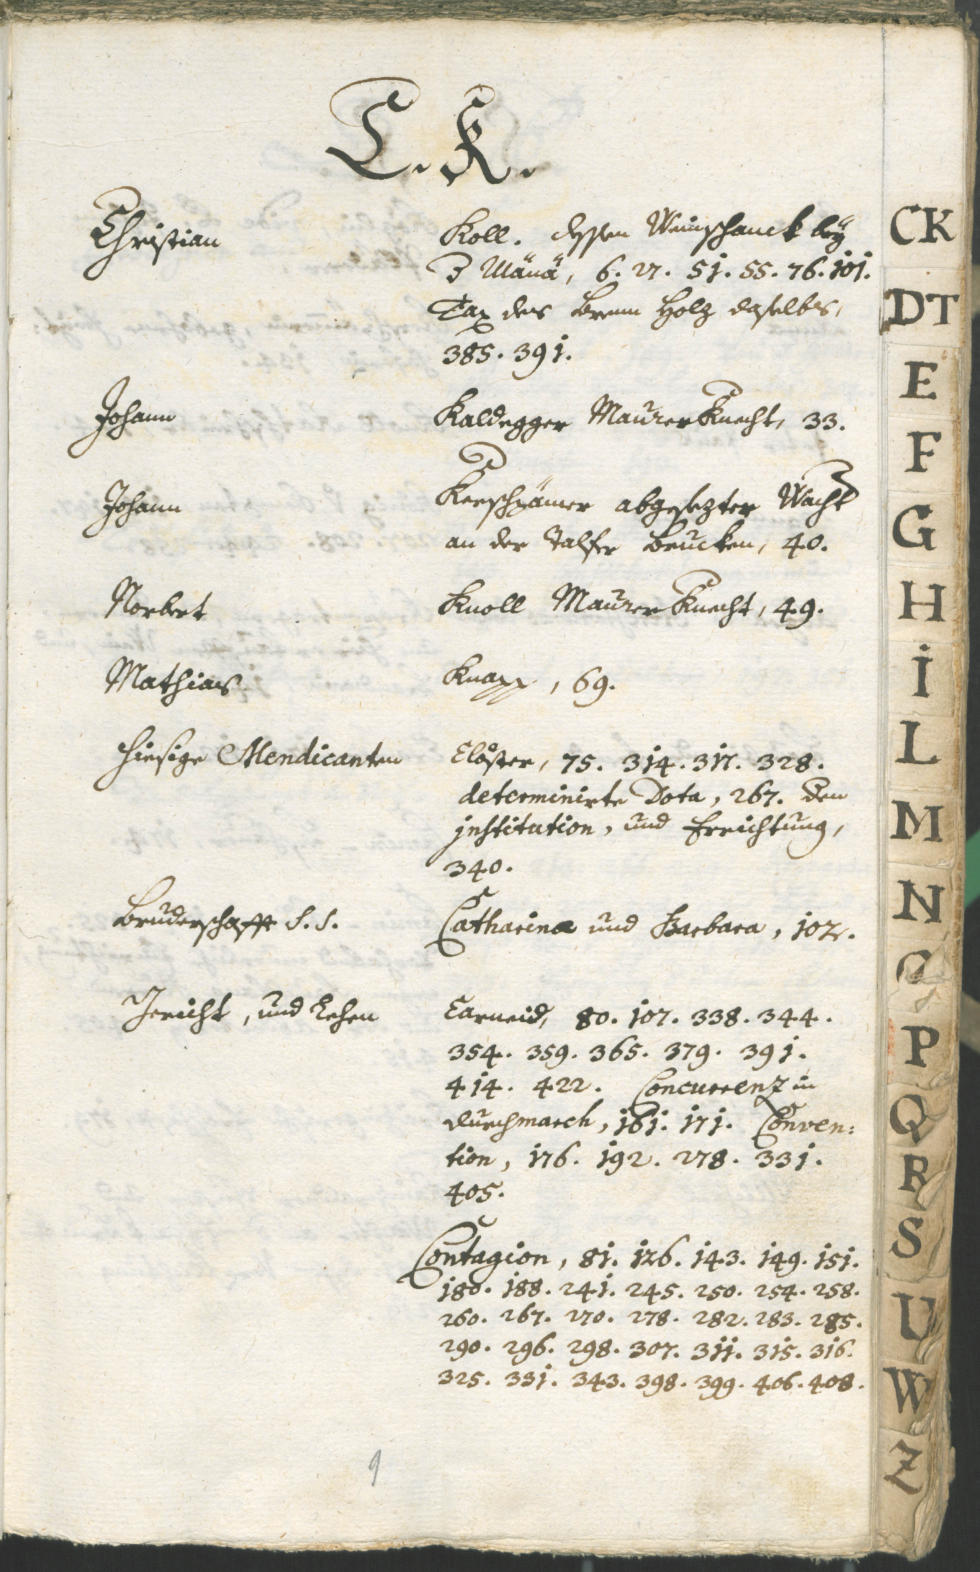 C. K.
Christian Koll. dessen Weinschanck beÿ
3 Mänä, 6. 27. 51. 55. 76. 101.
Tax des Brenn Holz daselbs,
385. 391.
Johann Kaldegger Maurer Knecht, 33.
Johann Kerschpämer abgesezter Wacht
an der Talfer Brucken, 40.
Norbert Knoll Maurer Knecht, 49.
Mathias Knapp, 69.
hiesige Mendicanten Clöster, 75. 314. 317. 328.
determinirte Dota, 267. den
institution, und Errichtung,
340.
Bruderschafft S. S. Catharina und Barbara, 102.
Gericht, und Lehen Carneid, 80. 107. 338. 344.
354. 359. 365. 379. 391.
414. 422. Concurrenz in
durchmarch, 161. 171. Conven:
tion, 176. 192. 278. 331.
405.
Contagion, 81. 126. 143. 149. 151.
180. 188. 241. 245. 250. 254. 258.
260. 267. 270. 278. 282. 283. 285.
290. 296. 298. 307. 311. 315. 316.
325. 331. 343. 398. 399. 406. 408.
9
CK
DT
E
F
G
H
I
L
M
N
O
P
Q
R
S
U
W
Z